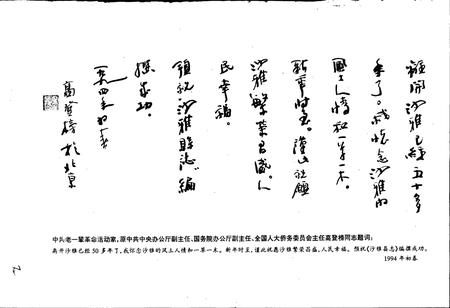 離開沙雅已經五十多
年了。我懷念沙雅的
風土人情和一草一木。
新年時至。謹此祝願
沙雅繁榮昌盛。人
民幸福。
預祝《沙雅縣志》編
撰成功。
一九九四年初春
高登榜於北京
中共老一辈革命活动家，原中共中央办公厅副主任、国务院办公厅副主任、全国人大侨务委员会主任高登榜同志题词：
离开沙雅已经50多年了，我怀念沙雅的风土人情和一草一木。新年时至，谨此祝愿沙雅繁荣昌盛，人民幸福。预祝《沙雅县志》编撰成功。
1994年初春
2